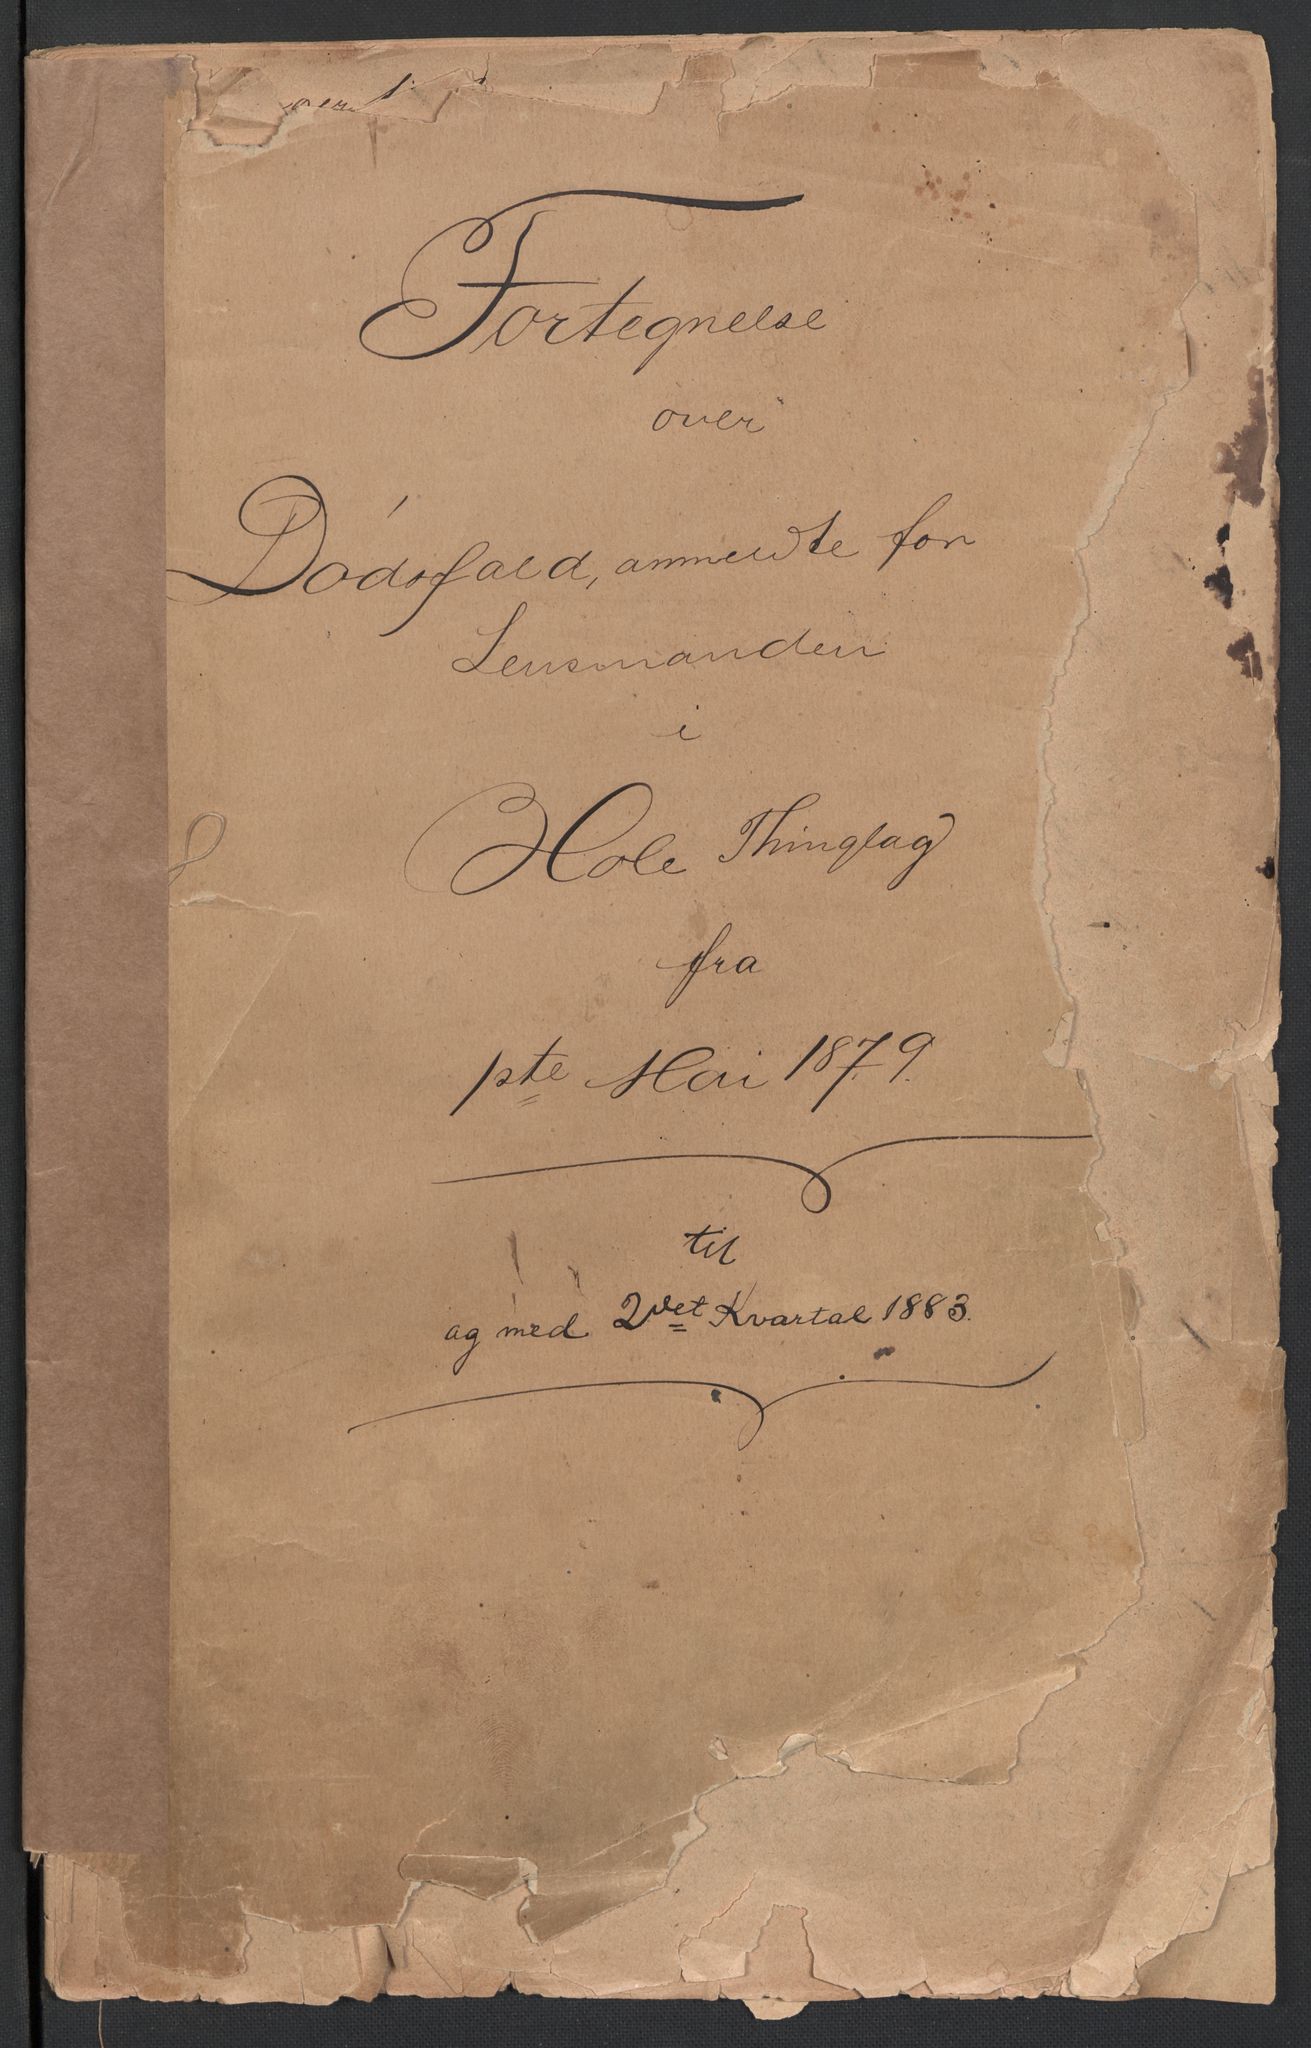 Fortegnelse
over
Dódsfald, anmeldte for
Lensmanden
i
Hole Thinglag
fra
1ste Mai 1879.
til
og med 2det Kvartal 1883.